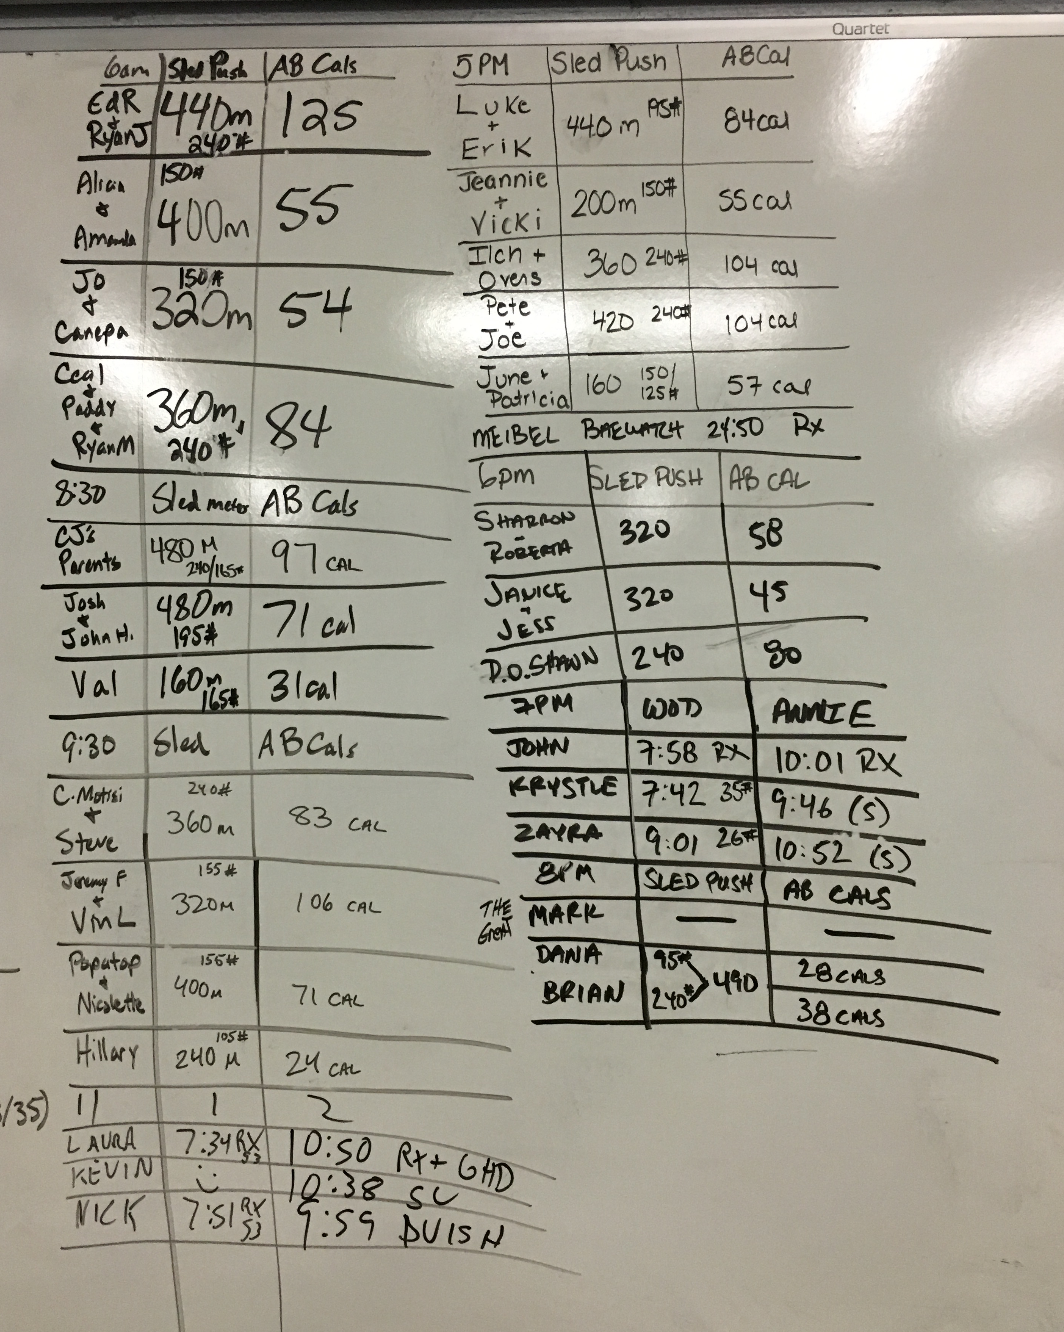 Quartet
6am Sled Push AB Cals
EdR & RyanJ 440m 240# 125
Alison & Amanda 150# 400m 55
Jo & Canepa 150# 320m 54
& Paddy & RyanM 360m, 240# 84
8:30 Sled meter AB Cals
CJ's Parents 480 M 240/165# 97 CAL
Josh & John H. 480m 195# 71 cal
Val 160m 165# 31 cal
9:30 Sled AB Cals
& Steve 240# 360m 83 CAL
Jeremy F & VmL 155# 320m 106 CAL
& Nicolette 155# 400m 71 CAL
Hillary 105# 240 M 24 CAL
/35) 11 1 2
LAURA 7:34 RX 53 10:50 RX + GHD
KEVIN 10:38 SC
NICK 7:51 RX 53 9:59 DUISH
5PM Sled Push AB Cal
Luke + Erik 440 m 195# 84 cal
Jeannie + Vicki 200m 150# 55 cal
Ilch + Ovens 360 240# 104 cal
Pete + Joe 420 240# 104 cal
June + Patricia 160 150/125# 57 cal
MEIBEL BAEWATCH 24:50 Rx
6pm SLED PUSH AB CAL
SHARRON - ROBERTA 320 58
JANICE - JESS 320 45
D.O. SHAWN 240 80
7PM WOD ANNIE
JOHN 7:58 RX 10:01 RX
KRYSTLE 7:42 35# 9:46 (S)
ZAYRA 9:01 26# 10:52 (S)
8PM SLED PUSH AB CALS
THE Great MARK — —
DANA 95# 28 CALS
BRIAN 240# 490 38 CALS